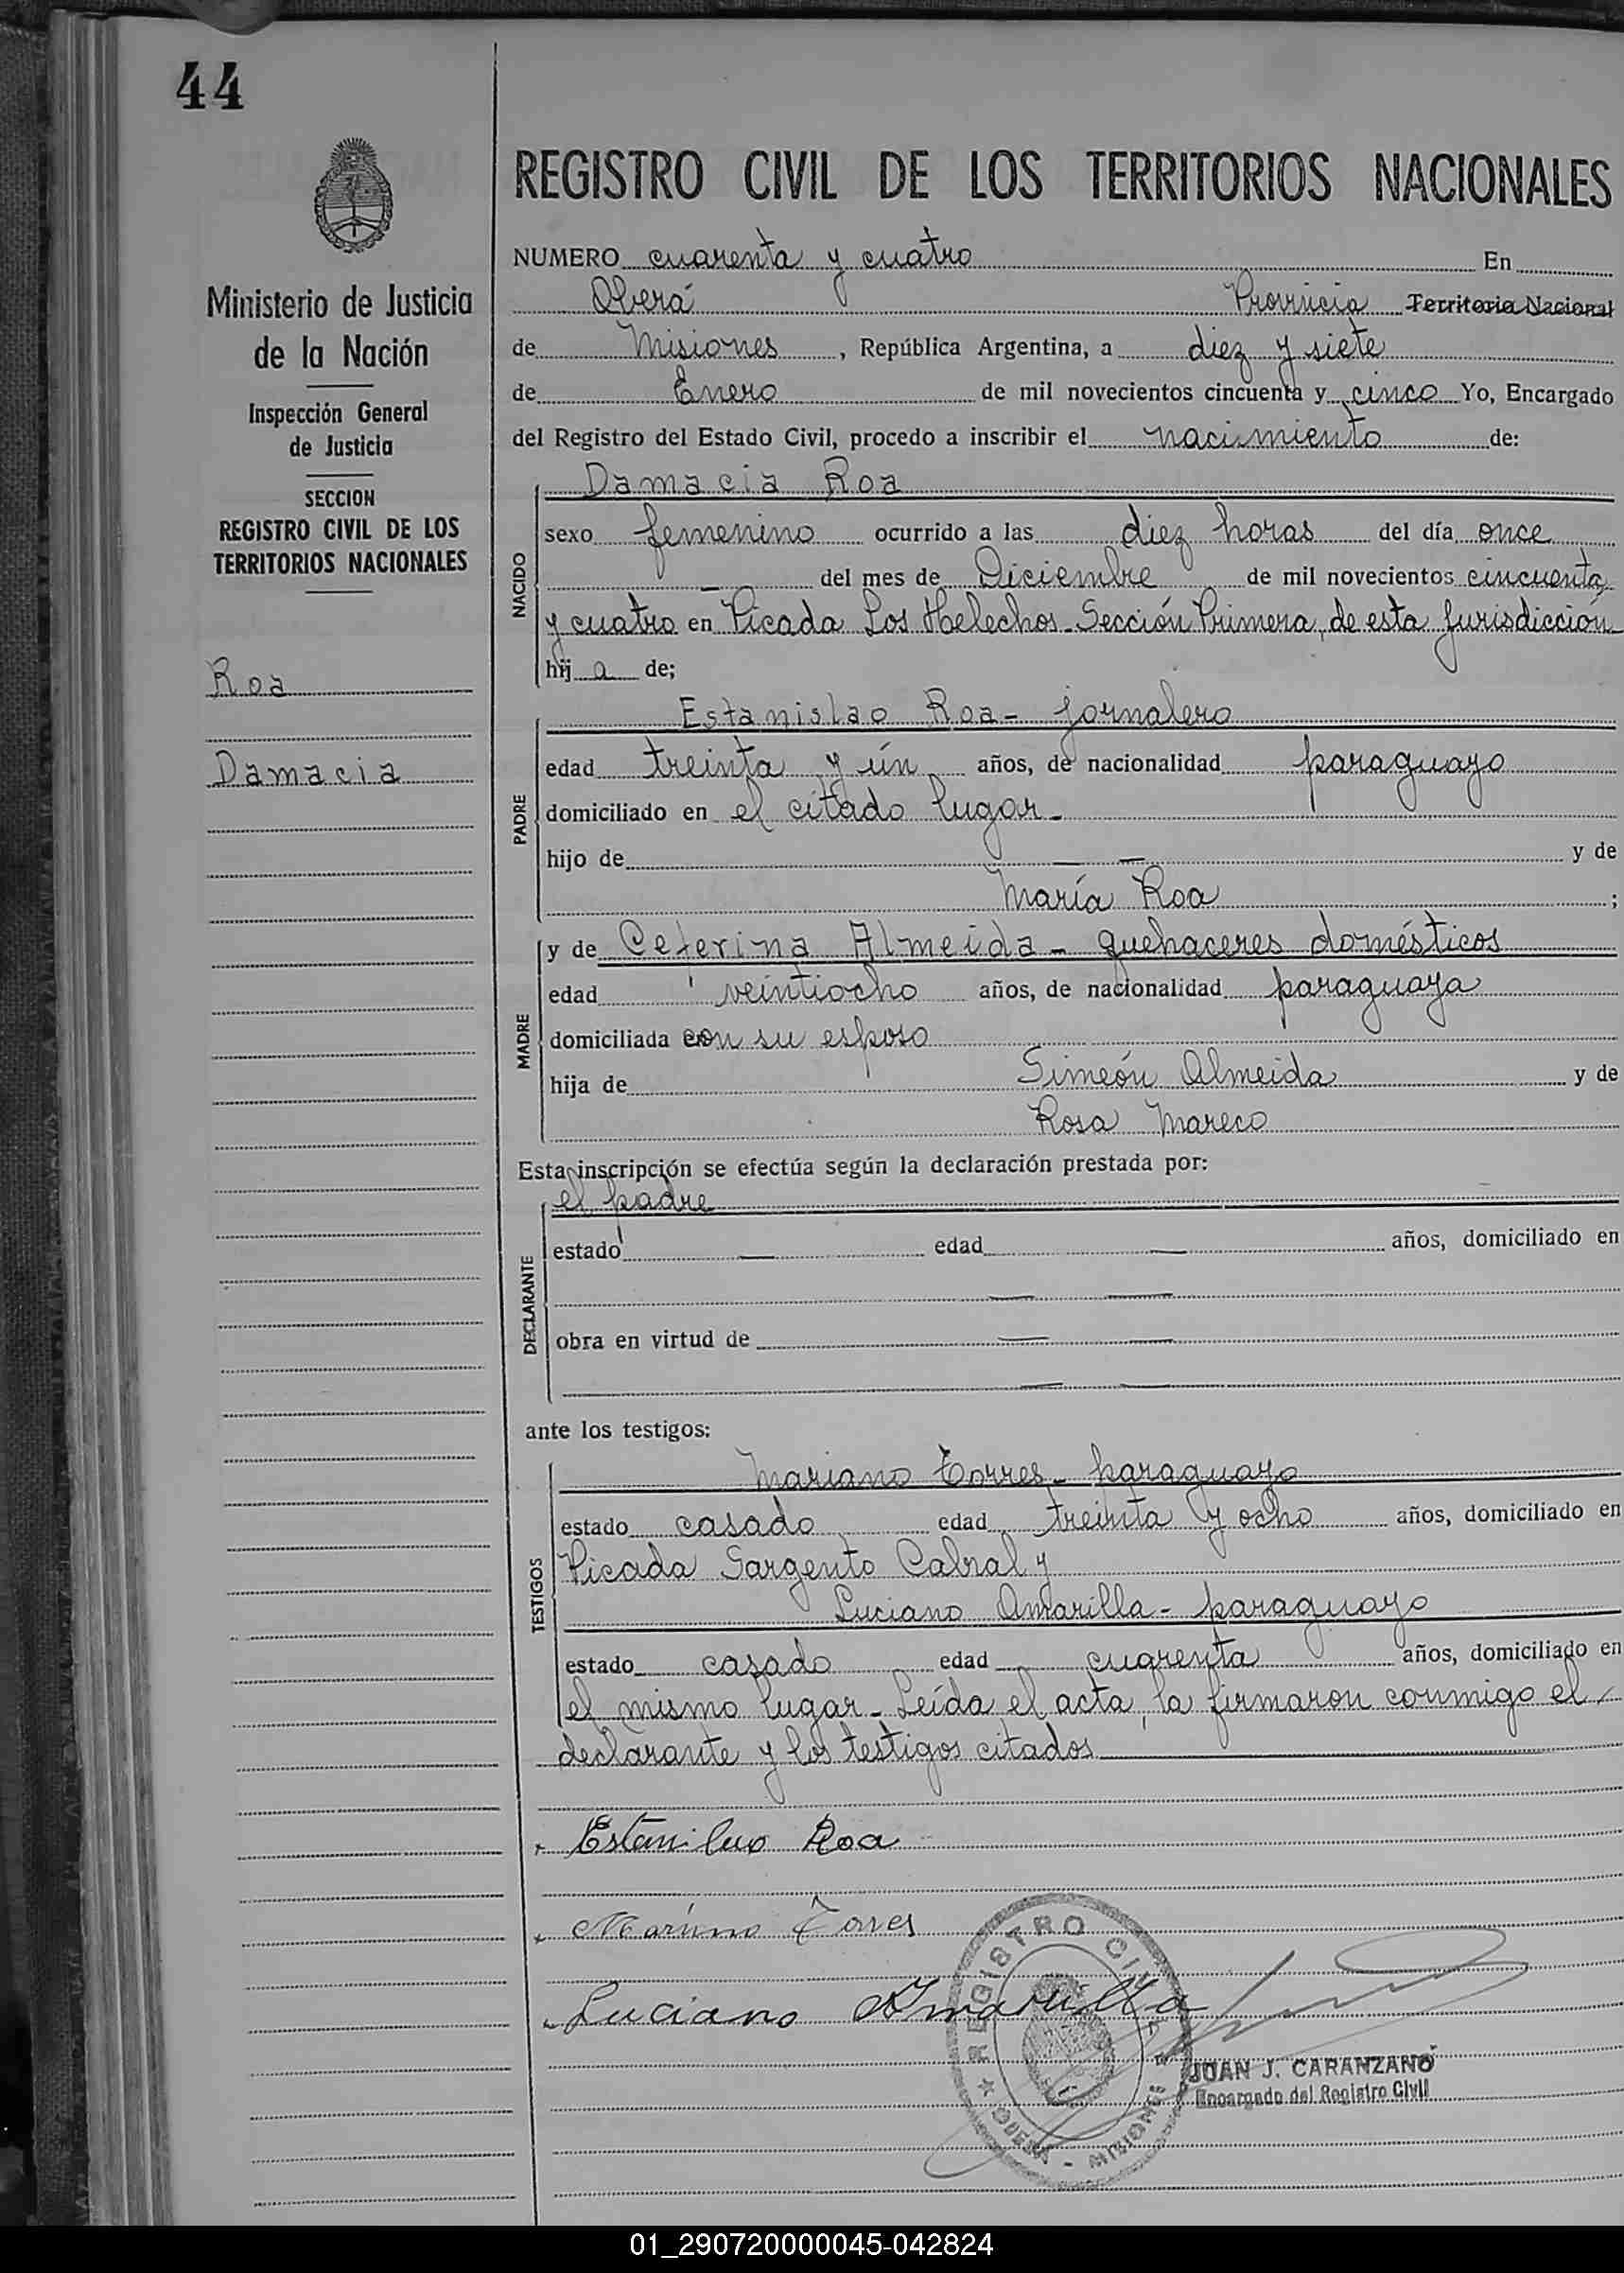 44
REGISTRO CIVIL DE LOS TERRITORIOS NACIONALES
Ministerio de Justicia
de la Nación
Inspección General
de Justicia
SECCION
REGISTRO CIVIL DE LOS
TERRITORIOS NACIONALES
Roa
Damacia
NUMERO cuarenta y cuatro En
Oberá Provincia Territorio Nacional
de Misiones, República Argentina, a diez y siete
de Enero de mil novecientos cincuenta y cinco Yo, Encargado
del Registro del Estado Civil, procedo a inscribir el nacimiento de:
NACIDO
Damacia Roa
sexo femenino ocurrido a las diez horas del día once
del mes de Diciembre de mil novecientos cincuenta
y cuatro en Picada Los Helechos-Sección Primera, de esta Jurisdicción
hij a de;
PADRE
Estanislao Roa- jornalero
edad treinta y ún años, de nacionalidad paraguayo
domiciliado en el citado lugar-
hijo de — — y de
María Roa ;
MADRE
y de Ceferina Almeida - quehaceres domésticos
edad veintiocho años, de nacionalidad paraguaya
domiciliada con su esposo
hija de Simeón Almeida y de
Rosa Mareco
Esta inscripción se efectúa según la declaración prestada por:
DECLARANTE
el padre
estado — edad — años, domiciliado en
— —
obra en virtud de — —
— —
ante los testigos:
TESTIGOS
Mariano Torres- paraguayo
estado casado edad treinta y ocho años, domiciliado en
Picada Sargento Cabral y
Luciano Amarilla- paraguayo
estado casado edad cuarenta años, domiciliado en
el mismo lugar- Leída el acta, la firmaron conmigo el
declarante y los testigos citados
Estanislao Roa
Mariano Torres
Luciano Amarilla
REGISTRO CIVIL
OBERA - MISIONES
JUAN J. CARANZANO
Encargado del Registro Civil
01_290720000045-042824